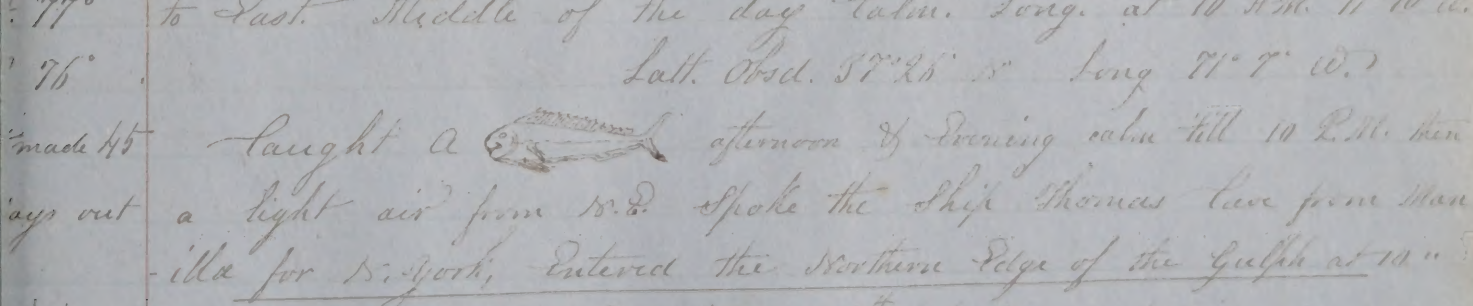 to East. Middle of the day Calm. Long. at 10 A.M. 71
76° Latt. Obsd. 37° 26 N Long 71° 7' W.
made 45 Caught A afternoon & Evening calm till 10 P.M. then
ays out a light air from N.E. Spoke the Ship Thomas from Man
illa for N. York, Entered the Northern Edge of the Gulph at 10 "